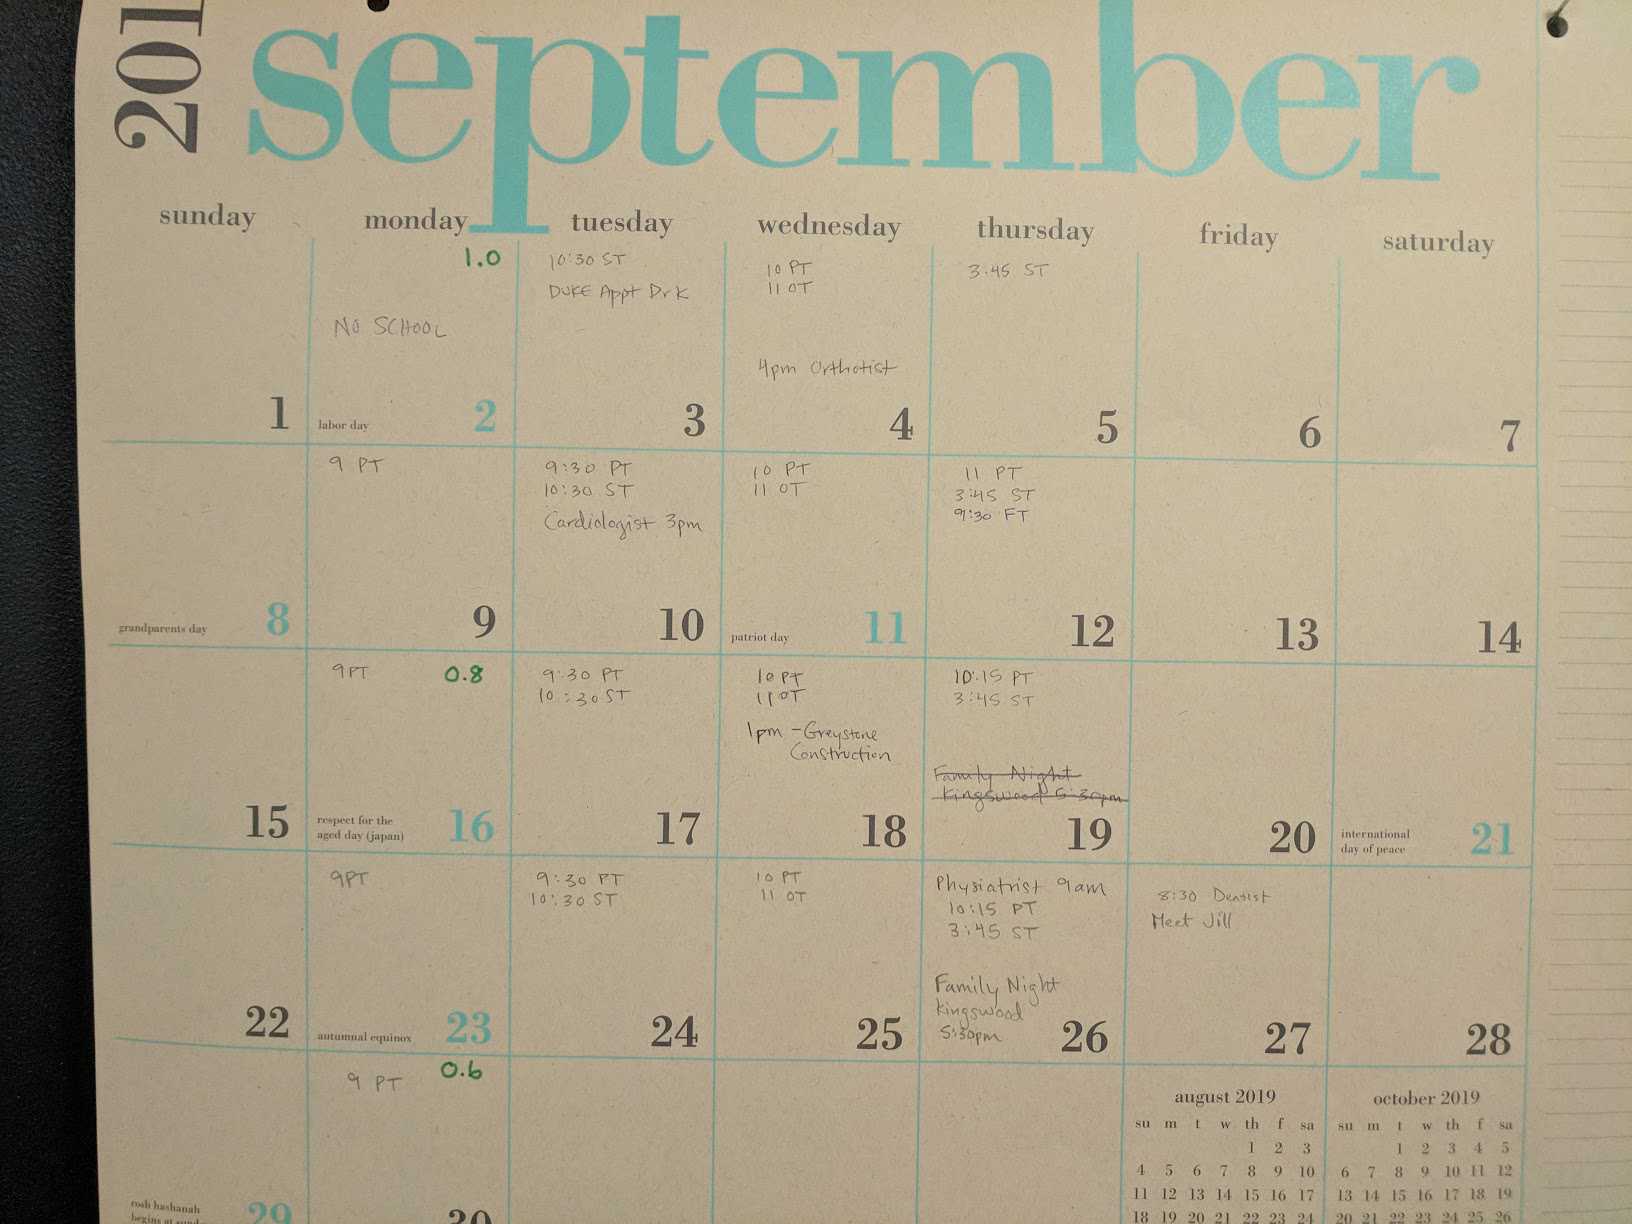 201
september
sunday monday tuesday wednesday thursday friday saturday
1
1.0
NO SCHOOL
labor day 2
10:30 ST
DUKE Appt Dr K
3
10 PT
11 OT
4pm Orthotist
4
3:45 ST
5
6
7
grandparents day 8
9 PT
9
9:30 PT
10:30 ST
Cardiologist 3pm
10
10 PT
11 OT
patriot day 11
11 PT
3:45 ST
9:30 FT
12
13
14
15
9PT 0.8
respect for the
aged day (japan) 16
9:30 PT
10:30 ST
17
10 PT
11 OT
1pm - Greystone
Construction
18
10:15 PT
3:45 ST
Family Night
Kingswood 5:30pm
19
20
international
day of peace 21
22
9PT
autumnal equinox 23
9:30 PT
10:30 ST
24
10 PT
11 OT
25
Physiatrist 9am
10:15 PT
3:45 ST
Family Night
Kingswood
5:30pm
26
8:30 Dentist
Meet Jill
27
28
rosh hashanah
begins at 29
9 PT 0.6
30
august 2019
su m t w th f sa
1 2 3
4 5 6 7 8 9 10
11 12 13 14 15 16 17
18 19 20 21 22 23 24
october 2019
su m t w th f sa
1 2 3 4 5
6 7 8 9 10 11 12
13 14 15 16 17 18 19
20 21 22 23 24 25 26